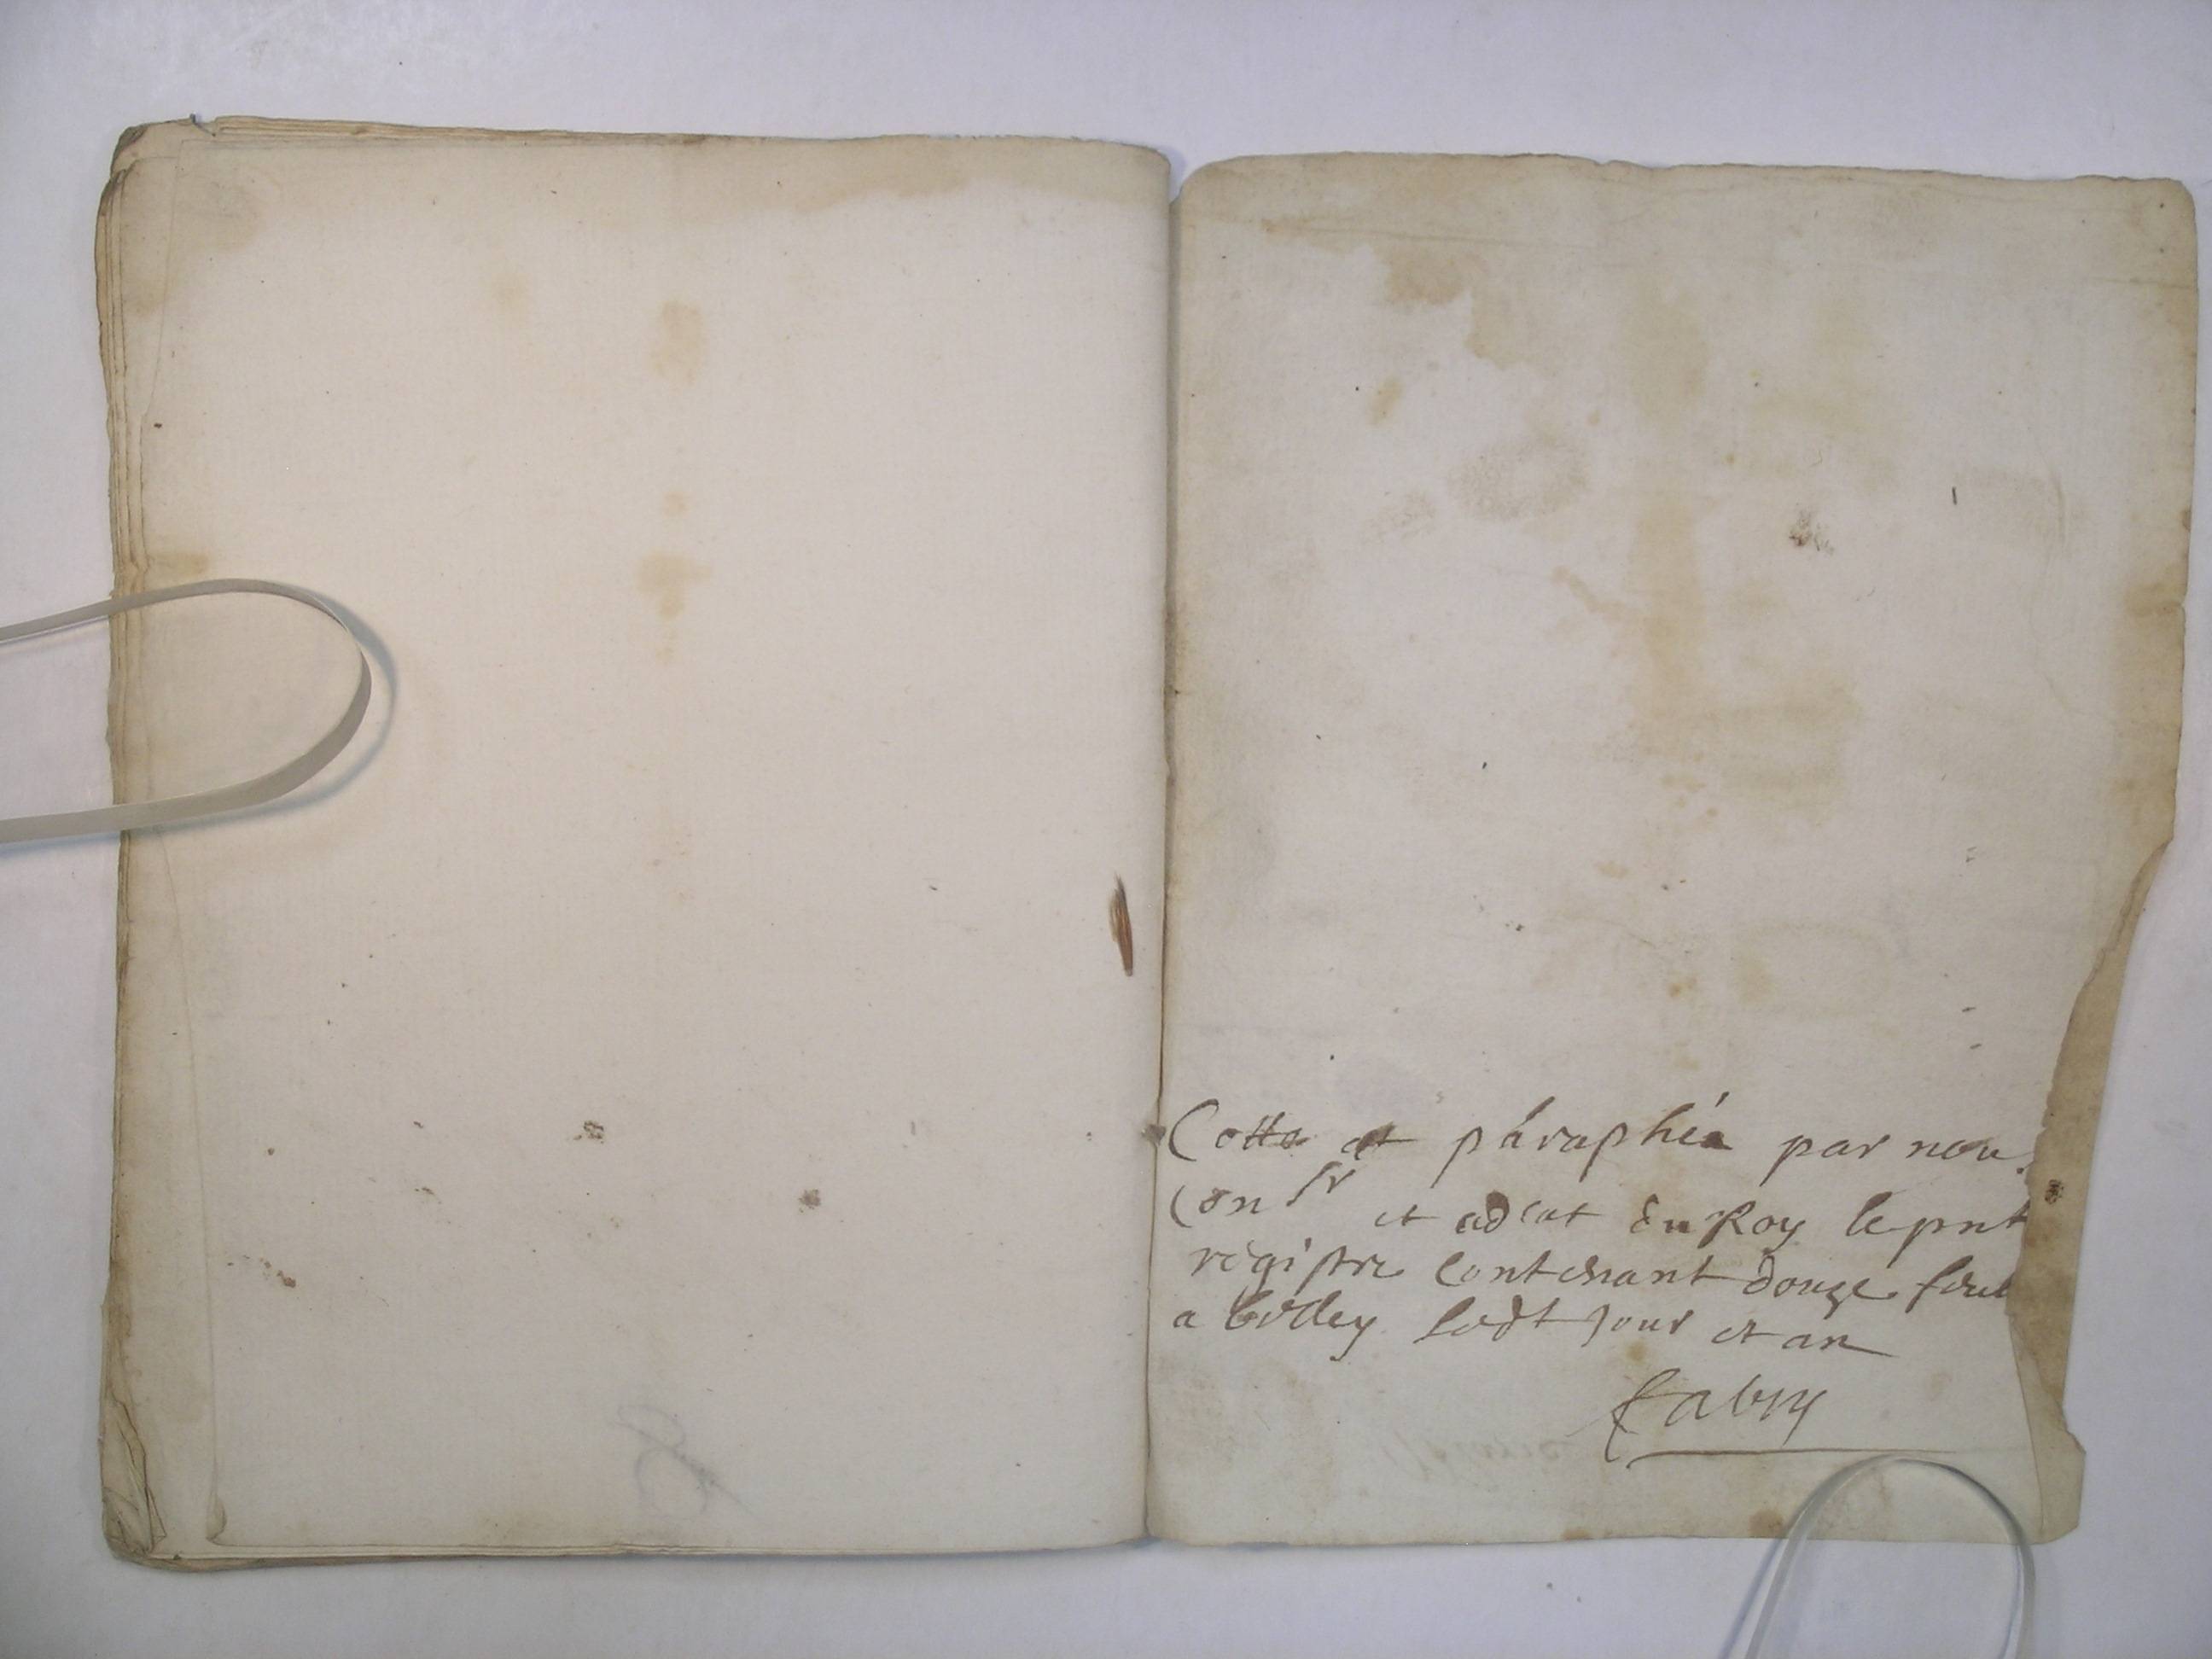 Cotte et paraphée par nou
Con sr et advat du Roy le pnt
registre contenant douze feuil
a Belley ledt jour et an
Fabry